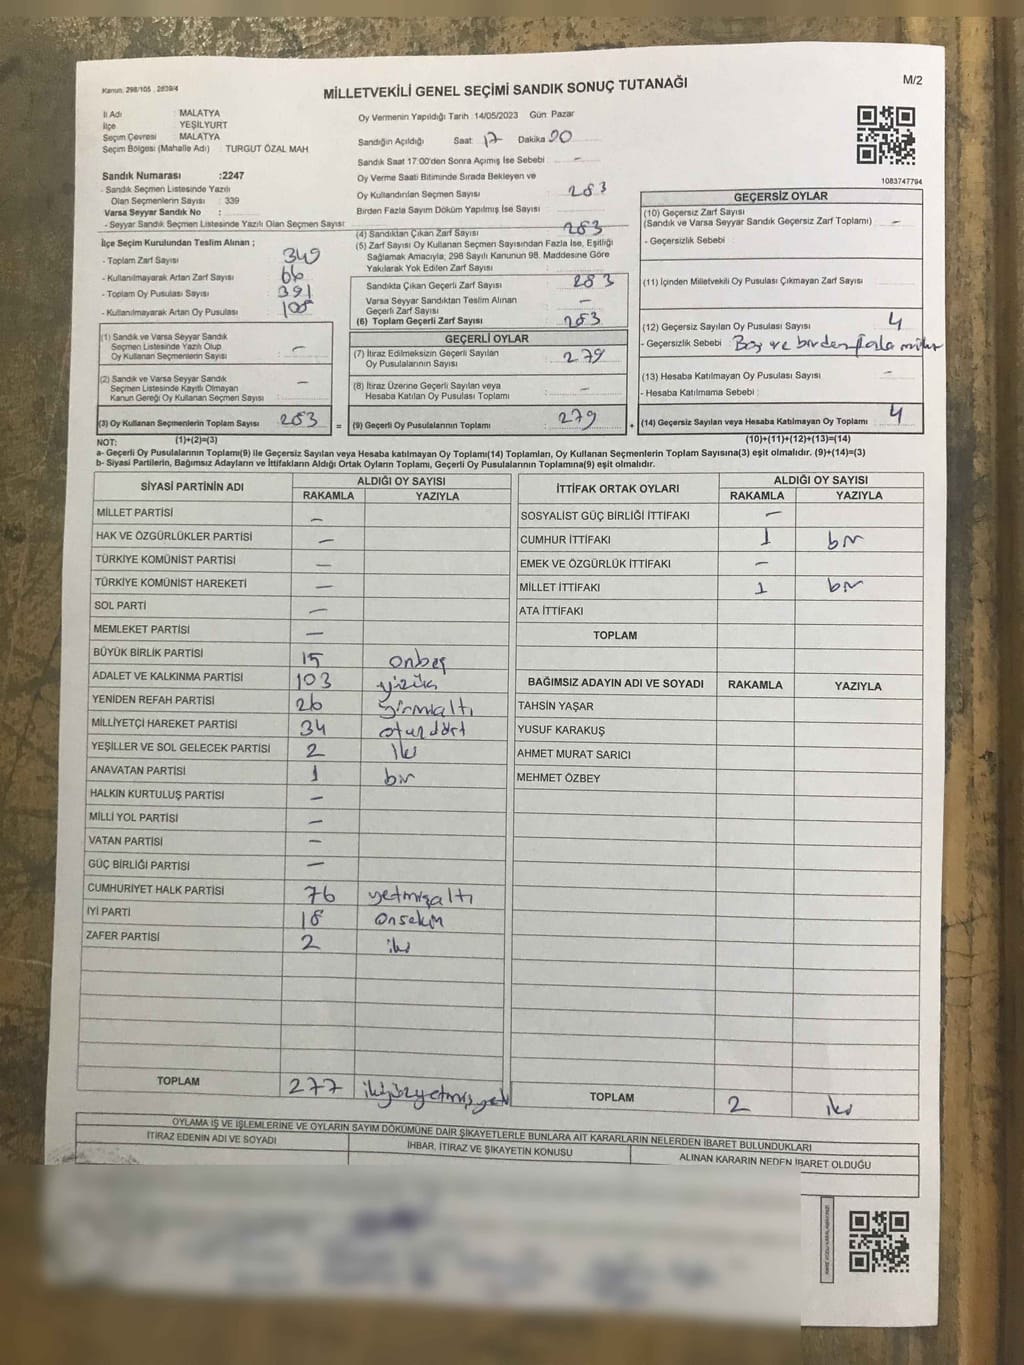 Kanun, 298/105 , 2839/4
MİLLETVEKİLİ GENEL SEÇİMİ SANDIK SONUÇ TUTANAĞI
M/2
İl Adı : MALATYA
İlçe : YEŞİLYURT
Seçim Çevresi : MALATYA
Seçim Bölgesi (Mahalle Adı) : TURGUT ÖZAL MAH
Sandık Numarası :2247
- Sandık Seçmen Listesinde Yazılı
Olan Seçmenlerin Sayısı : 339
Varsa Seyyar Sandık No :
- Seyyar Sandık Seçmen Listesinde Yazılı Olan Seçmen Sayısı:
İlçe Seçim Kurulundan Teslim Alınan ;
- Toplam Zarf Sayısı : 349
- Kullanılmayarak Artan Zarf Sayısı : 66
- Toplam Oy Pusulası Sayısı : 391
- Kullanılmayarak Artan Oy Pusulası : 108
(1) Sandık ve Varsa Seyyar Sandık
Seçmen Listesinde Yazılı Olup
Oy Kullanan Seçmenlerin Sayısı : –
(2) Sandık ve Varsa Seyyar Sandık
Seçmen Listesinde Kayıtlı Olmayan
Kanun Gereği Oy Kullanan Seçmen Sayısı : –
(3) Oy Kullanan Seçmenlerin Toplam Sayısı : 283
(1)+(2)=(3)
Oy Vermenin Yapıldığı Tarih : 14/05/2023 Gün: Pazar
Sandığın Açıldığı Saat: 17 Dakika 00
Sandık Saat 17:00'den Sonra Açımış İse Sebebi : –
Oy Verme Saati Bitiminde Sırada Bekleyen ve
Oy Kullandırılan Seçmen Sayısı : 283
Birden Fazla Sayım Döküm Yapılmış İse Sayısı :
(4) Sandıktan Çıkan Zarf Sayısı : 283
(5) Zarf Sayısı Oy Kullanan Seçmen Sayısından Fazla İse, Eşitliği
Sağlamak Amacıyla; 298 Sayılı Kanunun 98. Maddesine Göre
Yakılarak Yok Edilen Zarf Sayısı :
Sandıkta Çıkan Geçerli Zarf Sayısı : 283
Varsa Seyyar Sandıktan Teslim Alınan
Geçerli Zarf Sayısı : –
(6) Toplam Geçerli Zarf Sayısı : 283
GEÇERLİ OYLAR
(7) İtiraz Edilmeksizin Geçerli Sayılan
Oy Pusulalarının Sayısı : 279
(8) İtiraz Üzerine Geçerli Sayılan veya
Hesaba Katılan Oy Pusulası Toplamı : –
= (9) Geçerli Oy Pusulalarının Toplamı : 279
1083747794
GEÇERSİZ OYLAR
(10) Geçersiz Zarf Sayısı
(Sandık ve Varsa Seyyar Sandık Geçersiz Zarf Toplamı) : –
- Geçersizlik Sebebi :
(11) İçinden Milletvekili Oy Pusulası Çıkmayan Zarf Sayısı :
(12) Geçersiz Sayılan Oy Pusulası Sayısı : 4
- Geçersizlik Sebebi : Boş ve birden fazla mühür
(13) Hesaba Katılmayan Oy Pusulası Sayısı : –
- Hesaba Katılmama Sebebi :
+ (14) Geçersiz Sayılan veya Hesaba Katılmayan Oy Toplamı : 4
(10)+(11)+(12)+(13)=(14)
NOT:
a- Geçerli Oy Pusulalarının Toplamı(9) ile Geçersiz Sayılan veya Hesaba Katılmayan Oy Toplamı(14) Toplamları, Oy Kullanan Seçmenlerin Toplam Sayısına(3) eşit olmalıdır. (9)+(14)=(3)
b- Siyasi Partilerin, Bağımsız Adayların ve İttifakların Aldığı Ortak Oyların Toplamı, Geçerli Oy Pusulalarının Toplamına(9) eşit olmalıdır.
SİYASİ PARTİNİN ADI
ALDIĞI OY SAYISI
RAKAMLA YAZIYLA
MİLLET PARTİSİ –
HAK VE ÖZGÜRLÜKLER PARTİSİ –
TÜRKİYE KOMÜNİST PARTİSİ –
TÜRKİYE KOMÜNİST HAREKETİ –
SOL PARTİ –
MEMLEKET PARTİSİ –
BÜYÜK BİRLİK PARTİSİ 15 onbeş
ADALET VE KALKINMA PARTİSİ 103 yüzüç
YENİDEN REFAH PARTİSİ 26 yirmialtı
MİLLİYETÇİ HAREKET PARTİSİ 34 otuzdört
YEŞİLLER VE SOL GELECEK PARTİSİ 2 iki
ANAVATAN PARTİSİ 1 bir
HALKIN KURTULUŞ PARTİSİ –
MİLLİ YOL PARTİSİ –
VATAN PARTİSİ –
GÜÇ BİRLİĞİ PARTİSİ –
CUMHURİYET HALK PARTİSİ 76 yetmişaltı
İYİ PARTİ 18 onsekiz
ZAFER PARTİSİ 2 iki
TOPLAM 277 ikiyüzyetmişyedi
İTTİFAK ORTAK OYLARI
ALDIĞI OY SAYISI
RAKAMLA YAZIYLA
SOSYALİST GÜÇ BİRLİĞİ İTTİFAKI –
CUMHUR İTTİFAKI 1 bir
EMEK VE ÖZGÜRLÜK İTTİFAKI –
MİLLET İTTİFAKI 1 bir
ATA İTTİFAKI
TOPLAM
BAĞIMSIZ ADAYIN ADI VE SOYADI RAKAMLA YAZIYLA
TAHSİN YAŞAR
YUSUF KARAKUŞ
AHMET MURAT SARICI
MEHMET ÖZBEY
TOPLAM 2 iki
OYLAMA İŞ VE İŞLEMLERİNE VE OYLARIN SAYIM DÖKÜMÜNE DAİR ŞİKAYETLERLE BUNLARA AİT KARARLARIN NELERDEN İBARET BULUNDUKLARI
İTİRAZ EDENİN ADI VE SOYADI
İHBAR, İTİRAZ VE ŞİKAYETİN KONUSU
ALINAN KARARIN NEDEN İBARET OLDUĞU